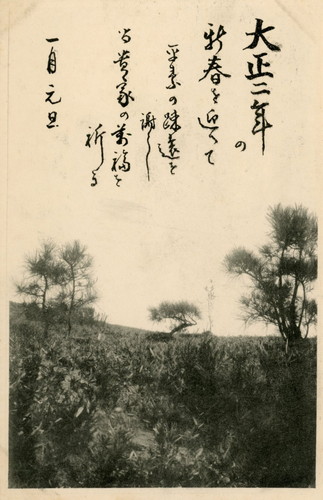 大正二年
の
新春を迎へて
平素の疎遠を
謝し
尚貴家の萬福を
祈る
一月元旦